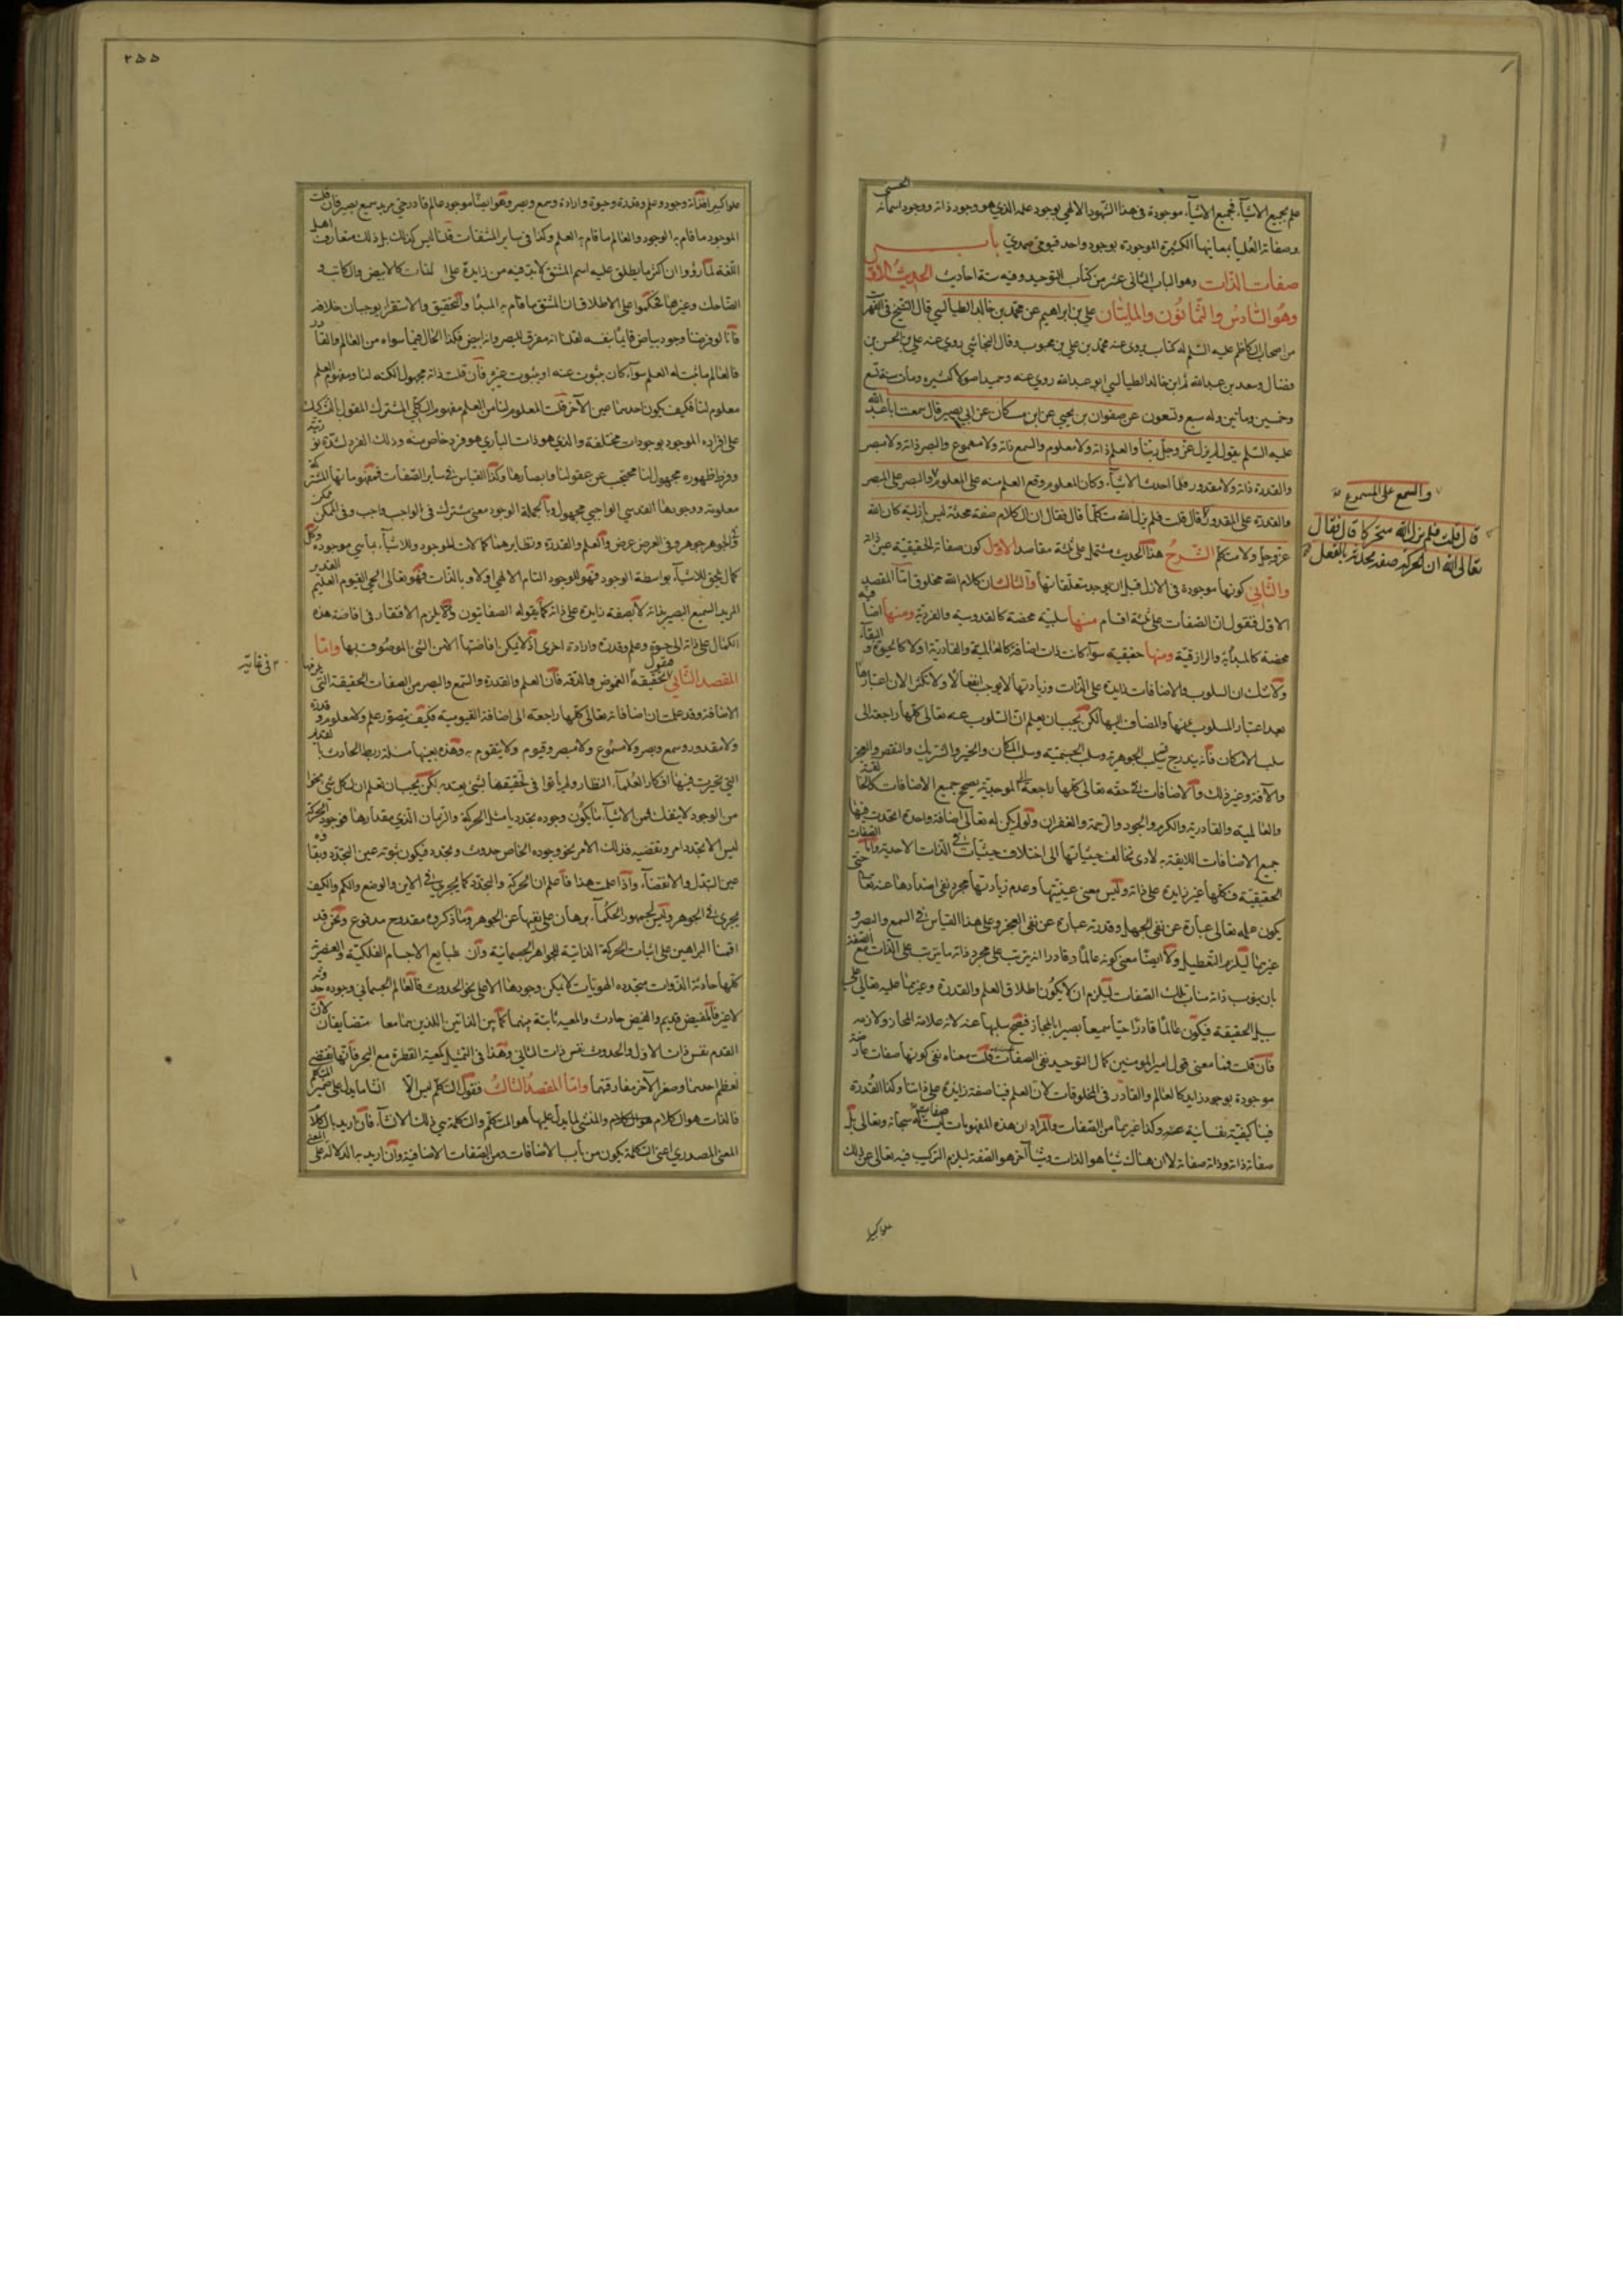 علم بجميع الاشيآء فجميع الاشيآء موجودة فى هذا الشهود الالهي بوجود علمه الذي هو وجود ذاته ووجود اسمائه الحسنى
وصفاته العُليا بمعانيها الكثيرة الموجودة بوجود واحد قيومي صمدي باب
صفات الذات وهو الباب الثانى عشر من كتاب التوحيد وفيه ستة احاديث الحديث الاوّل
وهو السّادس والثمانون والمايتان علي بن ابراهيم عن محمّد بن خالد الطيالسي قال الشيخ فى الفهرست
من اصحاب الكاظم عليه السّلم له كتاب روى عنه محمد بن علي بن محبوب وقال النجاشي روى عنه علي بن الحسن بن
فضال وسعد بن عبدالله ثم ابن خالد الطيالسي ابو عبدالله روى عنه حميد اصولا كثيره ومات سنة تسع
وخمسين ومأتين وله سبع وتسعون عن صفوان بن يحيى عن ابن مسكان عن ابي بصير قال سمعت ابا عبد الله
عليه السّلم يقول لم يزل الله عزّ وجلّ ربّنا والعلم ذاته ولا معلوم والسمع ذاته ولا مسموع والبصر ذاته ولا مبصر
والقدرة ذاته ولا مقدور فلما احدث الاشيآء وكان المعلوم وقع العلم منه على المعلوم والبصر على المبصر
والقدرة على المقدور قال قلت فلم يزل الله متكلّما قال فقال ان الكلام صفة محدثة ليس بازلية كان الله
عزّ وجلّ ولا متكلّم الشّرح هذا الحديث مشتمل على ثلثة مقاصد الاوّل كون صفاته الحقيقيّة عين ذاته
والثّانى كونها موجودة فى الازل قبل ان يوجد متعلّقاتها والثالث ان كلام الله مخلوق امّا المقصد
الاوّل فنقول ان الصّفات على ثلثة اقسام منها سلبيّة محضة كالقدوسية والفردية ومنها اضافيّة
محضة كالمبدأيّة والرازقيّة ومنها حقيقيه سوآء كانت ذات اضافة كالعالمية والقادرية او لا كالحيوة والبقآء
ولا شك ان السلوب والاضافات زايدة على الذات وزيادتها لا يوجب انفعالا ولا تكثرا لان اعتبارها
بعد اعتبار المسلوب عنها والمضاف اليها لكن يجب ان يعلم ان السّلوب عنه تعالى كلّها راجعة الى
سلب الامكان فانه يندرج فيه سلب الجوهرية وسلب الجسميّة وسلب المكان والحيز والشريك والنقص والعجز
والآفة وغير ذلك والاضافات فى حقه تعالى كلّها راجعة الى الموجدية يصحّ جميع الاضافات كالخالقية
والعالمية والقادرية والكرم والجود والرّحمة والغفران ولو لم يكن له تعالى اضافة واحدة اتحدت فيها
جميع الاضافات اللايقة به لادى تخالف حيثياتها الى اختلاف حيثيات فى الذات الاحدية وامّا الصّفات
الحقيقيّة فكلّها غير زايدة على ذاته وليس معنى عينيّتها وعدم زيادتها مجرد نفى اضدادها عنه تعالى حتى
يكون علمه تعالى عبارة عن نفى الجهل وقدرته عبارة عن نفى العجز وعلى هذا القياس فى السمع والبصر و
غيرهما ليلزم التّعطيل ولا ايضا معنى كونه عالما وقادرا ان يترتب على مجرد ذاته ما يترتب على الذات مع الصّفة
بان ينوب ذاته مناب تلك الصّفات ليلزم ان لا يكون اطلاق العلم والقدرة وغيرهما عليه تعالى على
سبيل الحقيقة فيكون عالمًا قادرًا حيّا سميعا بصيرا بالمجاز فيصحّ سلبها عنه لانه علامة المجاز ولازمه
فان قلت فما معنى قول امير المومنين كمال التوحيد نفى الصفات عنه قلت معناه نفى كونها صفات عارضة
موجودة بوجود زايد كالعالم والقادر فى المخلوقات لان العلم فينا صفة زايدة على ذاتنا وكذا القدرة
فينا كيفية نفسانية وكذا غيرهما من الصّفات والمراد ان هذه المفهومات ليست صفات له سبحانه وتعالى بل
صفاته ذاته وذاته صفاته لا ان هناك شيئا هو الذات وشيئا آخر هو الصّفة ليلزم التركيب فيه تعالى عن ذلك
علوا كبيرا
والسمع على المسموع صح
قال قلت فلم يزل الله متحركا قال فقال
تعالى الله ان الحركة صفة محدثة بالفعل صح
٢٥٥
علوا كبيرا فذاته وجود وعلم وقدرة وحيوة وارادة وسمع وبصر وهو ايضا موجود عالم قادر حي مريد سميع بصير فان قلت
الموجود ما قام به الوجود والعالم ما قام به العلم وكذا فى ساير المشتقات قلنا ليس كذلك بل ذلك متعارف اهل
اللّغة لما رؤوا ان اكثر ما يطلق عليه اسم المشتق لابد فيه من زايدة على الذات كالابيض والكاتب و
الضاحك وغيرها فحكموا على الاطلاق ان المشتق ما قام به المبدأ والتحقيق والاستقرار يوجبان خلافه
فانا لو فرضنا وجود بياض قايما بنفسه لقلنا انه مفرق للبصر وانه ابيض فكذا الحال فيما سواه من العالم والقادر
فالعالم ما ثبت له العلم سوآء كان بثبوت عينه او بثبوت غيره فان قلت ذاته مجهول الكنه لنا ومفهوم العلم
معلوم لنا فكيف يكون احدهما عين الآخر قلت المعلوم لنا من العلم مفهوم الكلّي المشترك المقول بالتشكيك
على افراده الموجود بوجودات مختلفة والذي هو ذات البارى هو فرد خاص منه وذلك الفرد لشدّة نوريّته
وفرط ظهوره مجهول لنا محتجب عن عقولنا وابصارنا وكذا القياس فى ساير الصّفات فمفهوماتها المشتركة
معلومة ووجودها القدسي الواجبي مجهول وبالجملة الوجود معنى مشترك فى الواجب واجب وفى الممكن ممكن
وفى الجوهر جوهر وفى العرض عرض والعلم والقدرة ونظايرهما كمالات للموجود وللاشيآء بما هي موجودة وكل
كمال يلحق للاشيآء بواسطة الوجود فهو للوجود التام الالهي اولا وبالذات فهو تعالى الحي القيوم العليم القدير
المريد السّميع البصير بذاته لا بصفة زايدة على ذاته كما يقوله الصفاتيون والا يلزم الافتقار فى افاضة هذه
الكمال على ذاته الى حيوة وعلم وقدرة وارادة اخرى اذ لا يمكن افاضتها الا من الشي الموصوف بها وامّا
المقصد الثّانى فنقول تحقيقه فى غاية الغموض والدقّة فان العلم والقدرة والسّمع والبصر من الصفات الحقيقة التى يلزمها
الاضافة وقد علمت ان اضافاته تعالى كلّها راجعة الى اضافة القيومية فكيف يتصوّر علم ولا معلوم وقدرة
ولا مقدور وسمع وبصر ولا مسموع ولا مبصر وقيوم ولا يتقوم به وهذه بعينها مسئلة ربط الحادث بالقديم
التي تحيرت فيها افكار العُلماء النظار ولم يأتوا فى تحقيقها بشئ يعتد به لكن يجب ان تعلم ان لكل شئ نحوا
من الوجود لا ينفك فمن الاشيآء ما يكون وجوده تجدديا مثل الحركة والزمان الذي مقدارها فوجود الحركة
ليس الا تجدد امر وتقضيه فذلك الامر نحو وجوده الخاص حدوث وتجدد فيكون ثبوته عين التجدّد وبقاؤه
عين التبدّل والانقضآء واذا علمت هذا فاعلم ان الحركة والتجدّد كما يجرى فى الاين والوضع والكم والكيف
يجرى فى الجوهر وليس لجمهور الحكمآء برهان على نفيها عن الجوهر وما ذكروه مقدوح مدفوع ونحن قد
اقمنا البراهين على اثبات الحركة الذاتية للجواهر الجسمانية وان طبايع الاجسام الفلكيّة والعنصرية
كلّها حادثة الذّوات متجدده الهويات لا يمكن وجودها الا على نحو الحدوث فالعالم الجسمانى وجوده حدوثه
لا غير فالمفيض قديم والفيض حادث والمعيه ثابتة بينهما كما بين الذاتين اللذين هما معا متضايفان لان
القدم نفس ذات الاول والحدوث نفس ذات الثانى وهذا فى التمثيل كمعية القطرة مع البحر فانها تقتضي
تعظم احدهما وصغر الآخر مفارقتهما وامّا المقصد الثّالث فنقول التكلّم ليس الّا انشا ما يدل على ضمير المتكلم
فالذات هو الكلام والمنشى لما يدلّ عليها هو المتكلّم والتكلم هي ذلك الانشآء فان اريد بالكلام
المعنى المصدري اعنى التكلم يكون من باب الاضافات ومن الصّفات الاضافية وان اريد به الدلالة على المعنى
فى غاية
علوا كبيرا